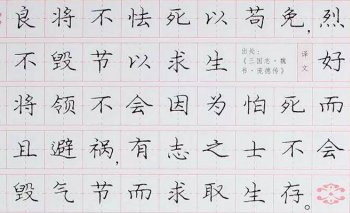 良将不怯死以苟免，烈
不毁节以求生 出处：《三国志·魏书·庞德传》 译文 好
将领不会因为怕死而
且避祸，有志之士不会
毁气节而求取生存。